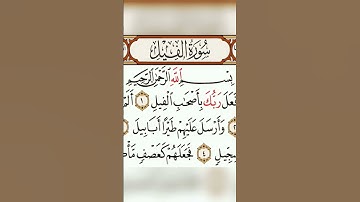 سُورَةُ الْفِيلِ
بِسْمِ اللَّهِ الرَّحْمَٰنِ الرَّحِيمِ
فَعَلَ رَبُّكَ بِأَصْحَابِ الْفِيلِ ١
وَأَرْسَلَ عَلَيْهِمْ طَيْرًا أَبَابِيلَ
٤ فَجَعَلَهُمْ كَعَصْفٍ